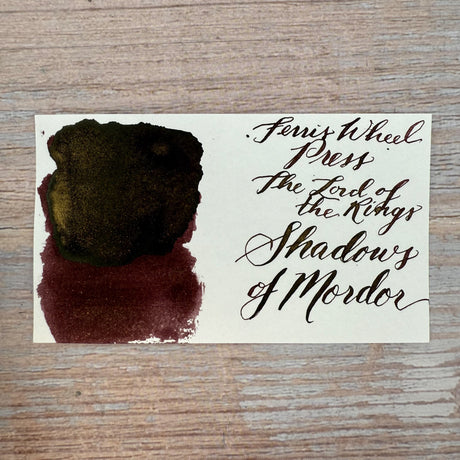 Ferris Wheel
Press
The Lord of
the Rings
Shadows
of Mordor